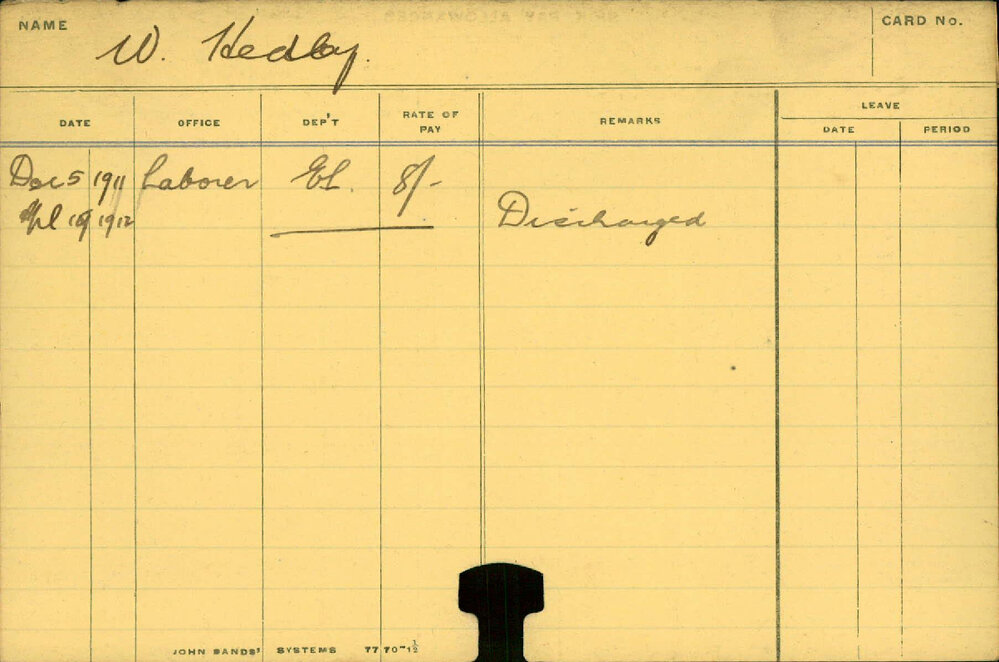 NAME W. Hedley. CARD No.
LEAVE
DATE OFFICE DEP'T RATE OF PAY REMARKS DATE PERIOD
Dec 5 1911 Laborer EL. 8/-
Apl 1912 Discharged
JOHN SANDS' SYSTEMS 7770-12